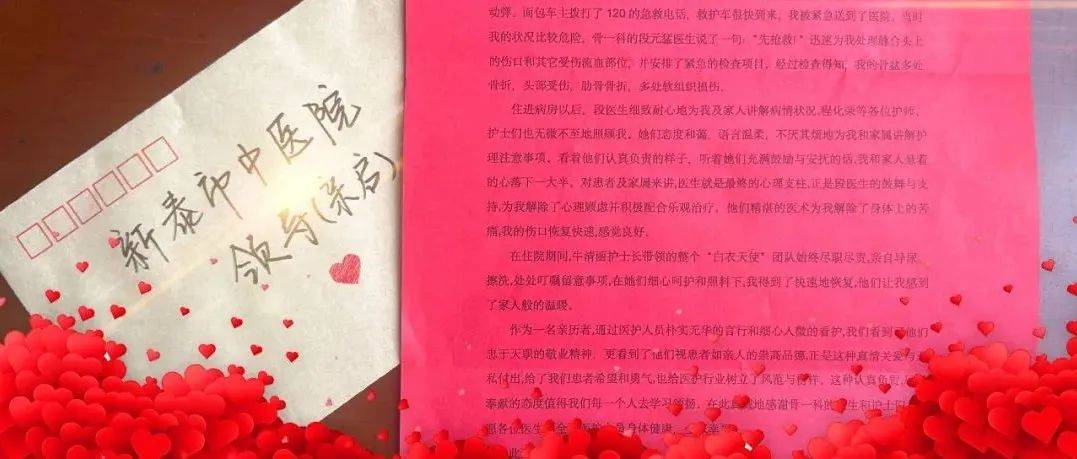 新泰市中医院
领导(亲启)
动弹。面包车主拨打了 120 的急救电话，救护车很快到来，我被紧急送到了医院。当时
我的状况比较危险，骨一科的段元猛医生说了一句：“先抢救！”迅速为我处理缝合头上
的伤口和其它受伤流血部位，并安排了紧急的检查项目。经过检查得知，我的骨盆多处
骨折，头部受伤，肋骨骨折，多处软组织损伤。
住进病房以后，段医生细致耐心地为我及家人讲解病情状况，程化荣等各位护师、
护士们也无微不至地照顾我。她们态度和蔼，语言温柔，不厌其烦地为我和家属讲解护
理注意事项。看着他们认真负责的样子，听着她们充满鼓励与安抚的话，我和家人悬着
的心落下一大半。对患者及家属来讲，医生就是最终的心理支柱，正是段医生的鼓舞与支
持，为我解除了心理顾虑并积极配合乐观治疗。他们精湛的医术为我解除了身体上的苦
痛，我的伤口恢复快速，感觉良好。
在住院期间，牛清丽护士长带领的整个“白衣天使”团队始终尽职尽责，亲自导尿、
擦洗，处处叮嘱留意事项，在她们细心呵护和照料下，我得到了快速地恢复，他们让我感到
了家人般的温暖。
作为一名亲历者，通过医护人员朴实无华的言行和细心入微的看护，我们看到了他们
忠于天职的敬业精神，更看到了他们视患者如亲人的崇高品德，正是这种真情关爱与
私付出，给了我们患者希望和勇气，也给医护行业树立了风范与榜样。这种认真负责，
奉献的态度值得我们每一个人去学习颂扬。在此 地感谢骨一科的 生和护士
愿各位医生 身体健康，
此